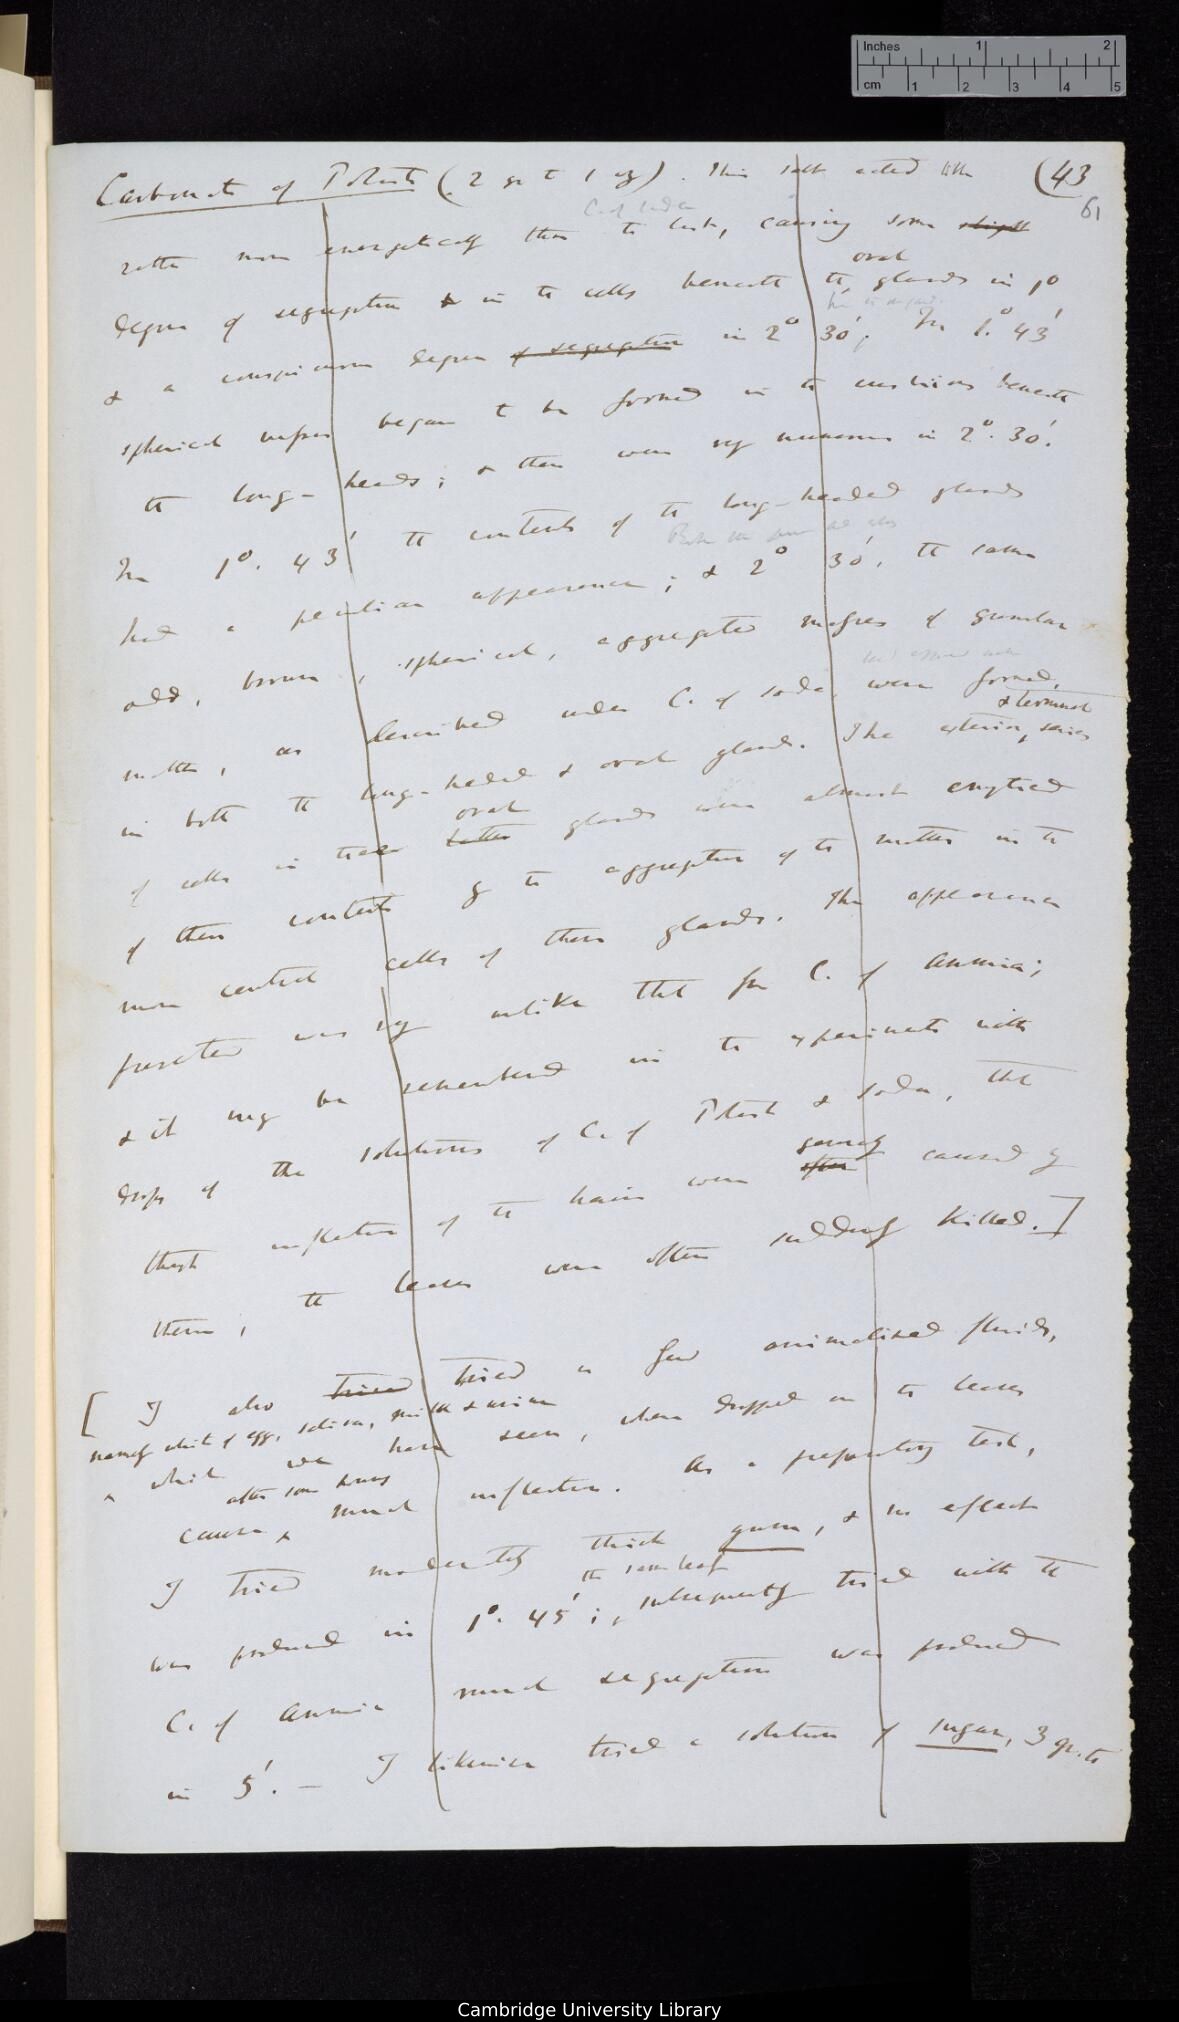 Inches 1 2
cm 1 2 3 4 5
(43
61
Carbonate of Potash (2 gr to 1 oz). This salt acted
rather more energetically than the last, causing some slight
C. of Soda
oval
degree of segregation in the cells beneath the glands in 1°
& a conspicuous degree of segregation in 2° 30'; In 1° 43'
spherical masses began to be formed in the cushions beneath
the long-heads; & there were very numerous in 2°. 30'.
In 1°. 43' the contents of the long-headed glands
had a peculiar appearance; & 2° 30', the same
odd, brown, spherical, aggregated masses of granular
matter, as described under C. of Soda, were formed,
& terminal
in both the long-headed & oval glands. The exterior series
oval
of cells in these latter glands were almost emptied
of their contents by the aggregation of the matter in the
more central cells of these glands. The appearance
presented was very unlike that from C. of Ammonia;
& it may be remembered in the experiments with
drops of the solutions of C. of Potash & Soda, that
generally
though inflection of the hairs were often caused by
them, the leaves were often suddenly killed.]
[ I also tried tried a few animalised fluids,
namely white of egg, saliva, milk & urine
which we have seen, when dropped on the leaves
after some hours
cause much inflection. As a preparatory test,
I tried moderately thick gum, & no effect
the same leaf
was produced in 1°. 45'; subsequently tried with the
C. of Ammonia much segregation was produced
in 5'. — I likewise tried a solution of sugar, 3 gr. to
Cambridge University Library